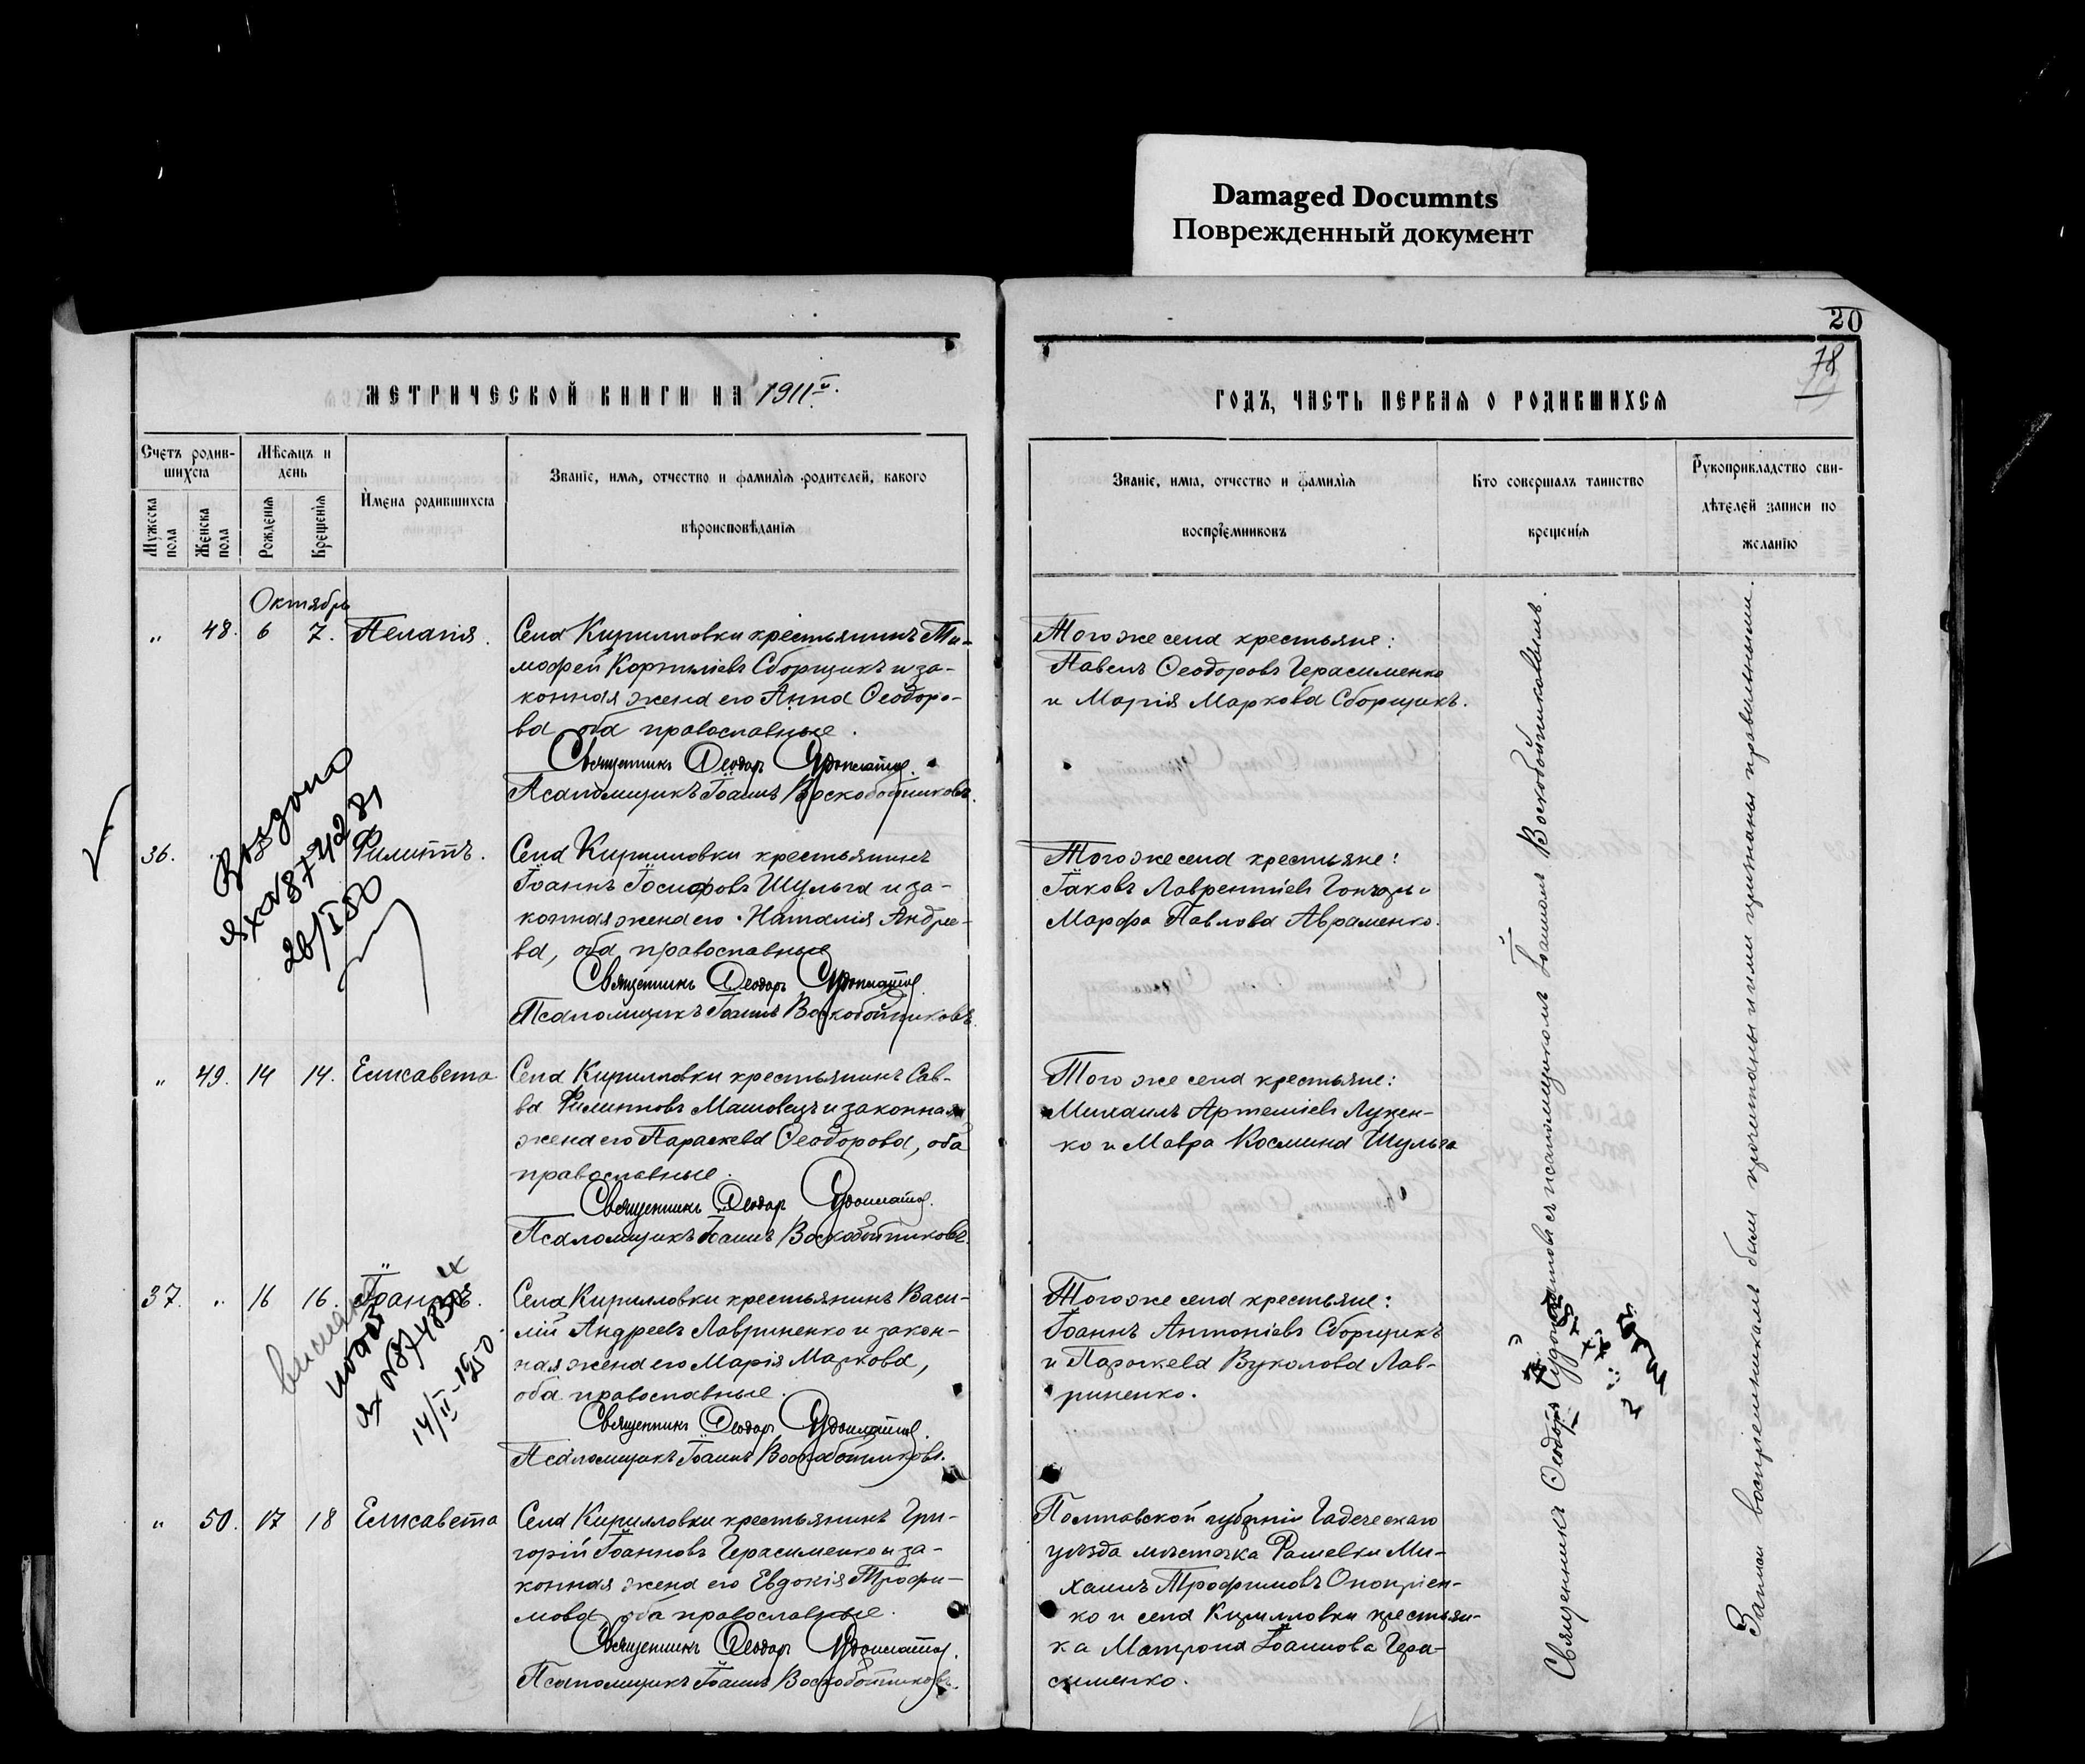 Damaged Documnts
Поврежденный документ
20
78
МЕТРИЧЕСКОЙ КНИГИ НА 1911й.
ГОДЪ, ЧАСТЬ ПЕРВАЯ О РОДИВШИХСЯ
Счетъ родив-
шихся
Мѣсяцъ и
день
Мужеска
пола
Женска
пола
Рожденія
Крещенія
Имена родившихся
Званіе, имя, отчество и фамилія родителей, какого
вѣроисповѣданія
Званіе, имя, отчество и фамилія
воспріемниковъ
Кто совершалъ таинство
крещенія
Рукоприкладство сви-
дѣтелей записи по
желанію
Октябрь
„ 48. 6 7. Пелагія.
Села Кирилловки крестьянинъ Ти-
мофей Корниліевъ Сборщикъ и за-
конная жена его Анна Ѳеодоро-
ва оба православные.
Священникъ Ѳеодоръ
Псаломщикъ Іоаннъ Воскобойниковъ.
Того же села крестьяне:
Павелъ Ѳеодоровъ Герасименко
и Марія Маркова Сборщикъ.
36. Филиппъ.
Села Кирилловки крестьянинъ
Іоаннъ Іосифовъ Шульга и за-
конная жена его Наталія Андрее-
ва, оба православные
Священникъ Ѳеодоръ
Псаломщикъ Іоаннъ Воскобойниковъ.
Того же села крестьяне:
Іаковъ Лаврентіевъ Гончаръ и
Марфа Павлова Авраменко.
26/I 50
„ 49. 14 14. Елисавета
Села Кирилловки крестьянинъ Сав-
ва Филипповъ Машовецъ и законная
жена его Параскева Ѳеодорова, оба
православные.
Священникъ Ѳеодоръ
Псаломщикъ Іоаннъ Воскобойниковъ.
Того же села крестьяне:
Михаилъ Артеміевъ Луцен-
ко и Мавра Космина Шульга
37. „ 16 16. Іоаннъ.
Села Кирилловки крестьянинъ Васи-
лій Андреевъ Лавриненко и закон-
ная жена его Марія Маркова,
оба православные.
Священникъ Ѳеодоръ
Псаломщикъ Іоаннъ Воскобойниковъ.
Того же села крестьяне:
Іоаннъ Антоніевъ Сборщикъ
и Параскева Вуколова Лав-
риненко.
14/II-1950
„ 50. 17 18 Елисавета
Села Кирилловки крестьянинъ Гри-
горій Іоанновъ Герасименко и за-
конная жена его Евдокія Трофи-
мова оба православные.
Священникъ Ѳеодоръ
Псаломщикъ Іоаннъ Воскобойниковъ.
Полтавской губерніи Гадяческаго
уѣзда мѣстечка Рашевки Ми-
хаилъ Трофимовъ Оноприен-
ко и села Кирилловки крестьян-
ка Матрона Іоаннова Гера-
сименко.
Священникъ Ѳеодоръ съ псаломщикомъ Іоанномъ Воскобойниковымъ.
Записи воспріемникамъ были прочитаны и ими признаны правильными.